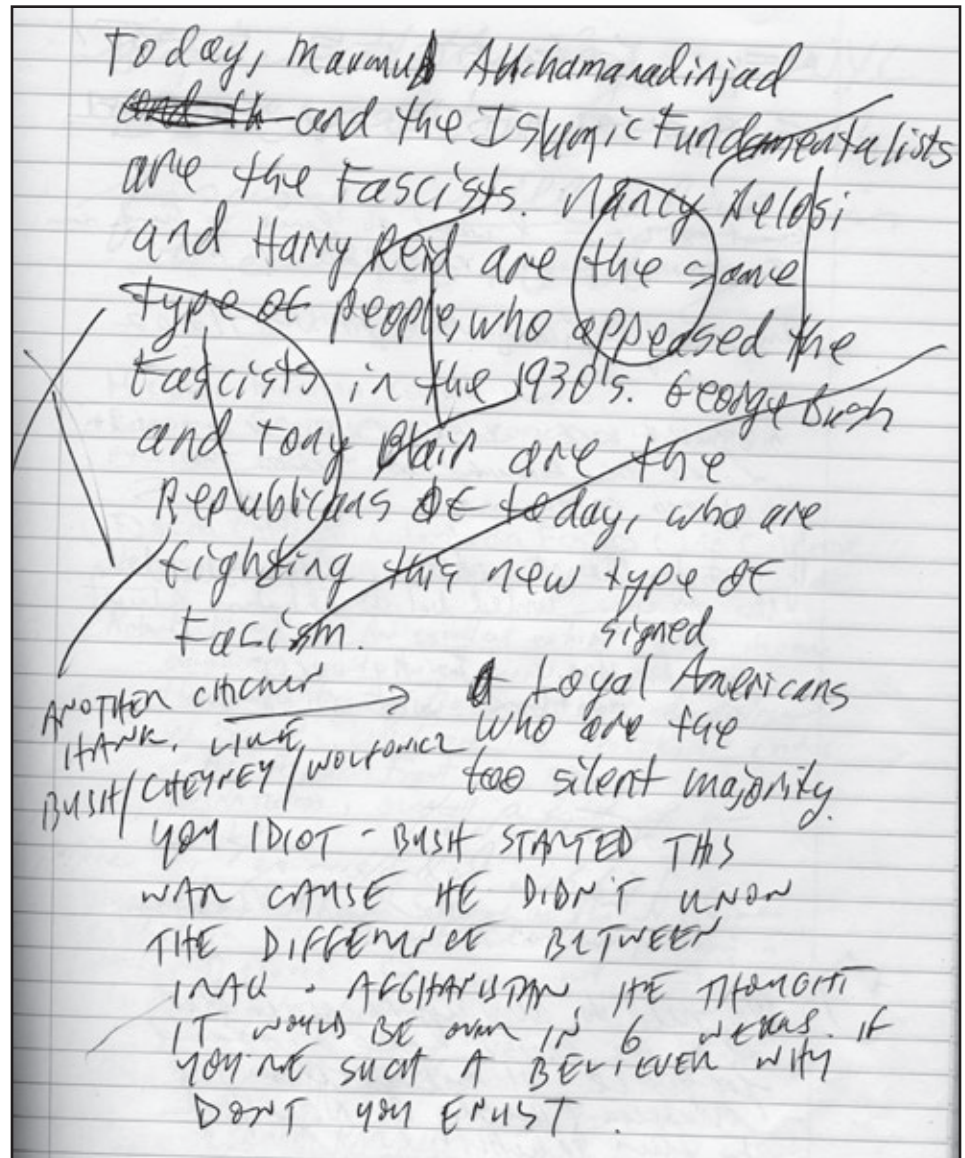 Today, Maumud Ahchamanadinjad
and th and the Islamic Fundamentalists
are the Fascists. Nancy Pelosi
and Harry Reid are the same
type of people, who appeased the
Fascists in the 1930's. George Bush
and Tony Blair are the
Republicans of today, who are
fighting this new type of
Facism. signed
Loyal Americans
who are the
too silent majority.
ANOTHER CHICKEN
HAWK, LIKE
BUSH/CHEYNEY/WOLFOWICZ
YOU IDIOT - BUSH STARTED THIS
WAR CAUSE HE DIDN'T KNOW
THE DIFFERENCE BETWEEN
IRAQ + AFGHANISTAN, HE THOUGHT
IT WOULD BE OVER IN 6 WEEKS. IF
YOU'RE SUCH A BELIEVER WHY
DON'T YOU ENLIST.